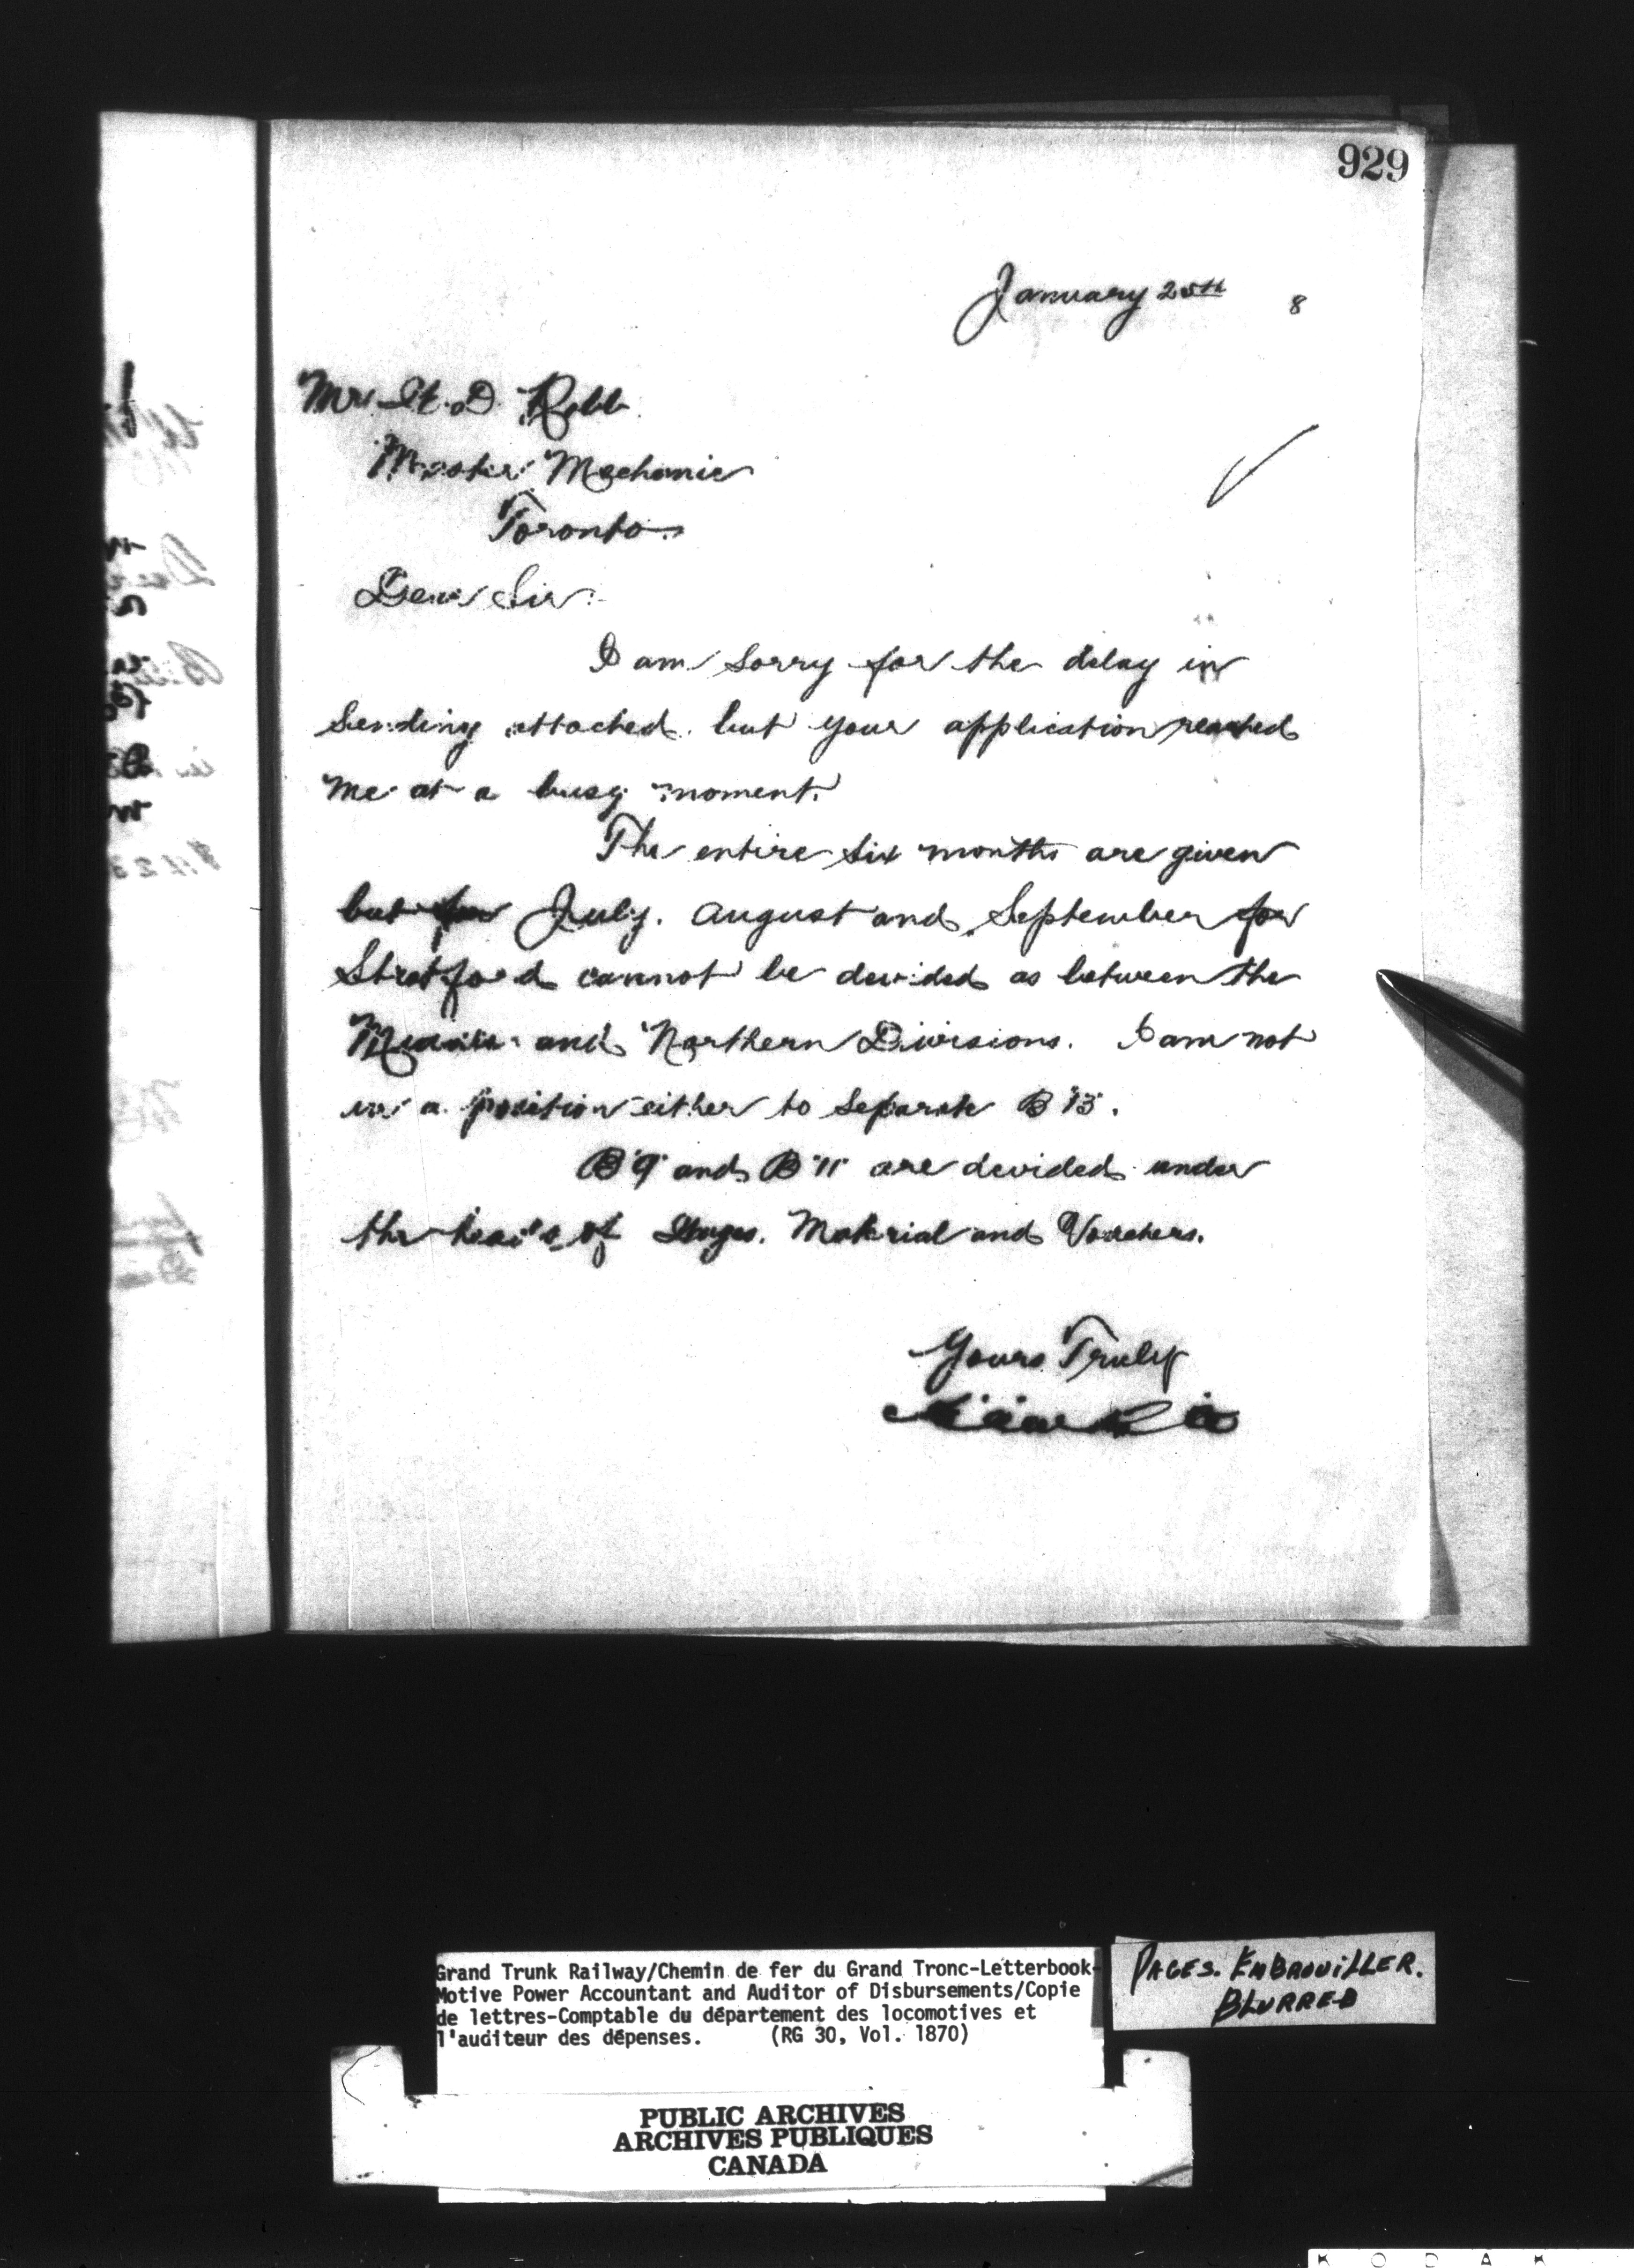 929
January 20th 8
Mr. W. D. Robb
Master Mechanic
Toronto.
Dear Sir:-
I am sorry for the delay in
sending attached but your application reached
me at a busy moment.
The entire six months are given
but for July. August and September for
Stratford cannot be devided as between the
Middle and Northern Divisions. I am not
in a position either to separate B 13.
B 9 and B 11 are devided under
the heads of Wages. Material and Vouchers.
Yours Truly
Grand Trunk Railway/Chemin de fer du Grand Tronc-Letterbook-
Motive Power Accountant and Auditor of Disbursements/Copie
de lettres-Comptable du département des locomotives et
l'auditeur des dépenses. (RG 30, Vol. 1870)
PAGES. EMBROUILLER.
BLURRED
PUBLIC ARCHIVES
ARCHIVES PUBLIQUES
CANADA
K O D A K